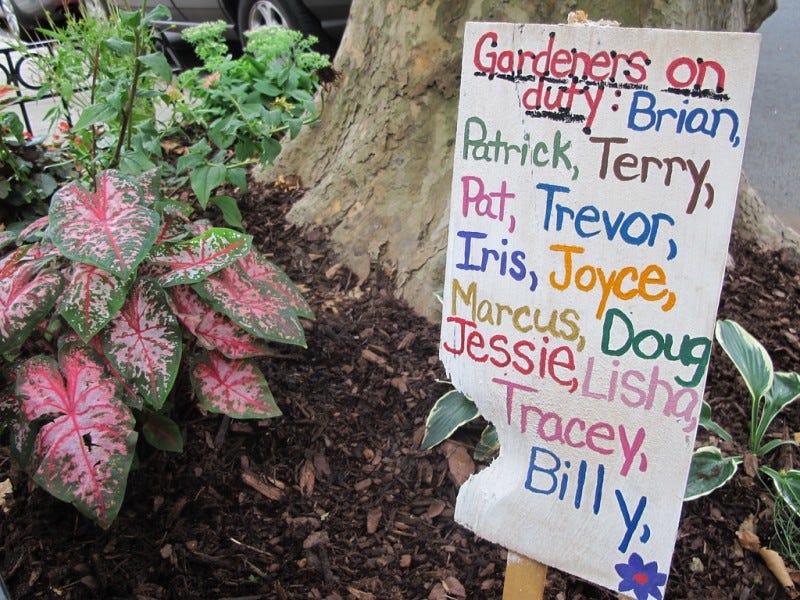 Gardeners on
duty: Brian,
Patrick, Terry,
Pat, Trevor,
Iris, Joyce,
Marcus, Doug
Jessie, Lisha,
Tracey,
Billy,